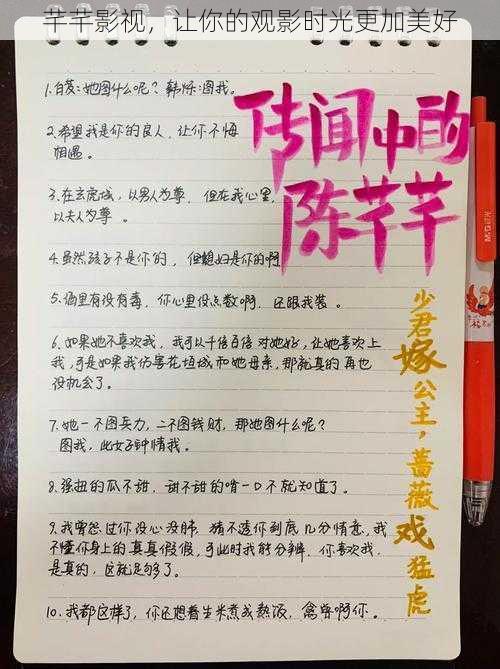 芊芊影视，让你的观影时光更加美好
传闻中的
陈芊芊
少君嫁公主，蔷薇戏猛虎
1.白芨：她图什么呢？韩烁：图我。
2.希望我是你的良人，让你不悔
相遇。
3.在玄虎城，以男人为尊，但在我心里，
以夫人为尊。
4.虽然孩子不是你的，但媳妇是你的啊
5.酒里有没有毒，你心里没点数啊，还跟我装。
6.如果她不喜欢我，我可以千倍百倍对她好，让她喜欢上
我，可是如果我伤害花垣城和她母亲，那就真的再也
没机会了。
7.她一不图兵力，二不图钱财，那她图什么呢？
图我，此女子钟情我。
8.强扭的瓜不甜，甜不甜的啃一口不就知道了。
9.我曾怨过你没心没肺，猜不透你到底几分情意，我
不懂你身上的真真假假，可此时我能分辨，你喜欢我，
是真的，这就足够了。
10.我都这样了，你还想着生米煮成熟饭，禽兽啊你。
M&G